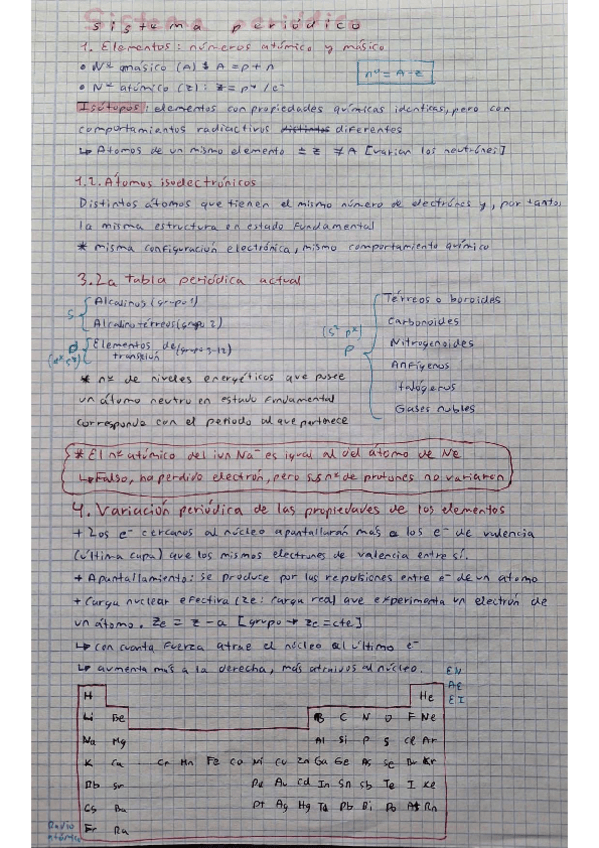 Sistema periódico
1. Elementos: números atómico y másico
• Nº másico (A) : A = p + n
• Nº atómico (Z) : Z = p+ / e-
nº = A - Z
Isótopos: elementos con propiedades químicas identicas, pero con
comportamientos radiactivos distintos diferentes
↳ Átomos de un mismo elemento = Z ≠ A [varían los neutrónes]
1.2. Átomos isoelectrónicos
Distintos átomos que tienen el mismo número de electrónes y, por tanto,
la misma estructura en estado fundamental
* misma configuración electrónica, mismo comportamiento químico
3. La tabla periódica actual
s
Alcalinos (grupo 1)
Alcalino térreos (grupo 2)
d
Elementos de transición (grupo 3-12)
(s² pˣ)
p
Térreos o boroides
Carbonoides
Nitrogenoides
Anfígenos
Halógenos
Gases nobles
* nº de niveles energéticos que posee
un átomo neutro en estado fundamental
corresponde con el periodo al que pertenece
* El nº atómico del ion Na- es igual al del átomo de Ne
↳ Falso, ha perdido electrón, pero sus nº de protones no variaron
4. Variación periódica de las propiedades de los elementos
+ Los e- cercanos al núcleo apantallarán más a los e- de valencia
(última capa) que los mismos electrones de valencia entre sí.
+ Apantallamiento: se produce por las repulsiones entre e- de un atomo
+ Carga nuclear efectiva (Ze: carga real que experimenta un electrón de
un átomo. Ze = z - a [grupo → Ze = cte]
↳ con cuanta fuerza atrae el núcleo al último e-
↳ aumenta más a la derecha, más atraidos al núcleo.
EN
AE
EI
H He
Li Be B C N O F Ne
Na Mg Al Si P S Cl Ar
K Ca Cr Mn Fe Co Ni Cu Zn Ga Ge As Se Br Kr
Rb Sr Pd Au Cd In Sn Sb Te I Xe
Cs Ba Pt Ag Hg Ta Pb Bi Po At Rn
Fr Ra
Radio
atómico